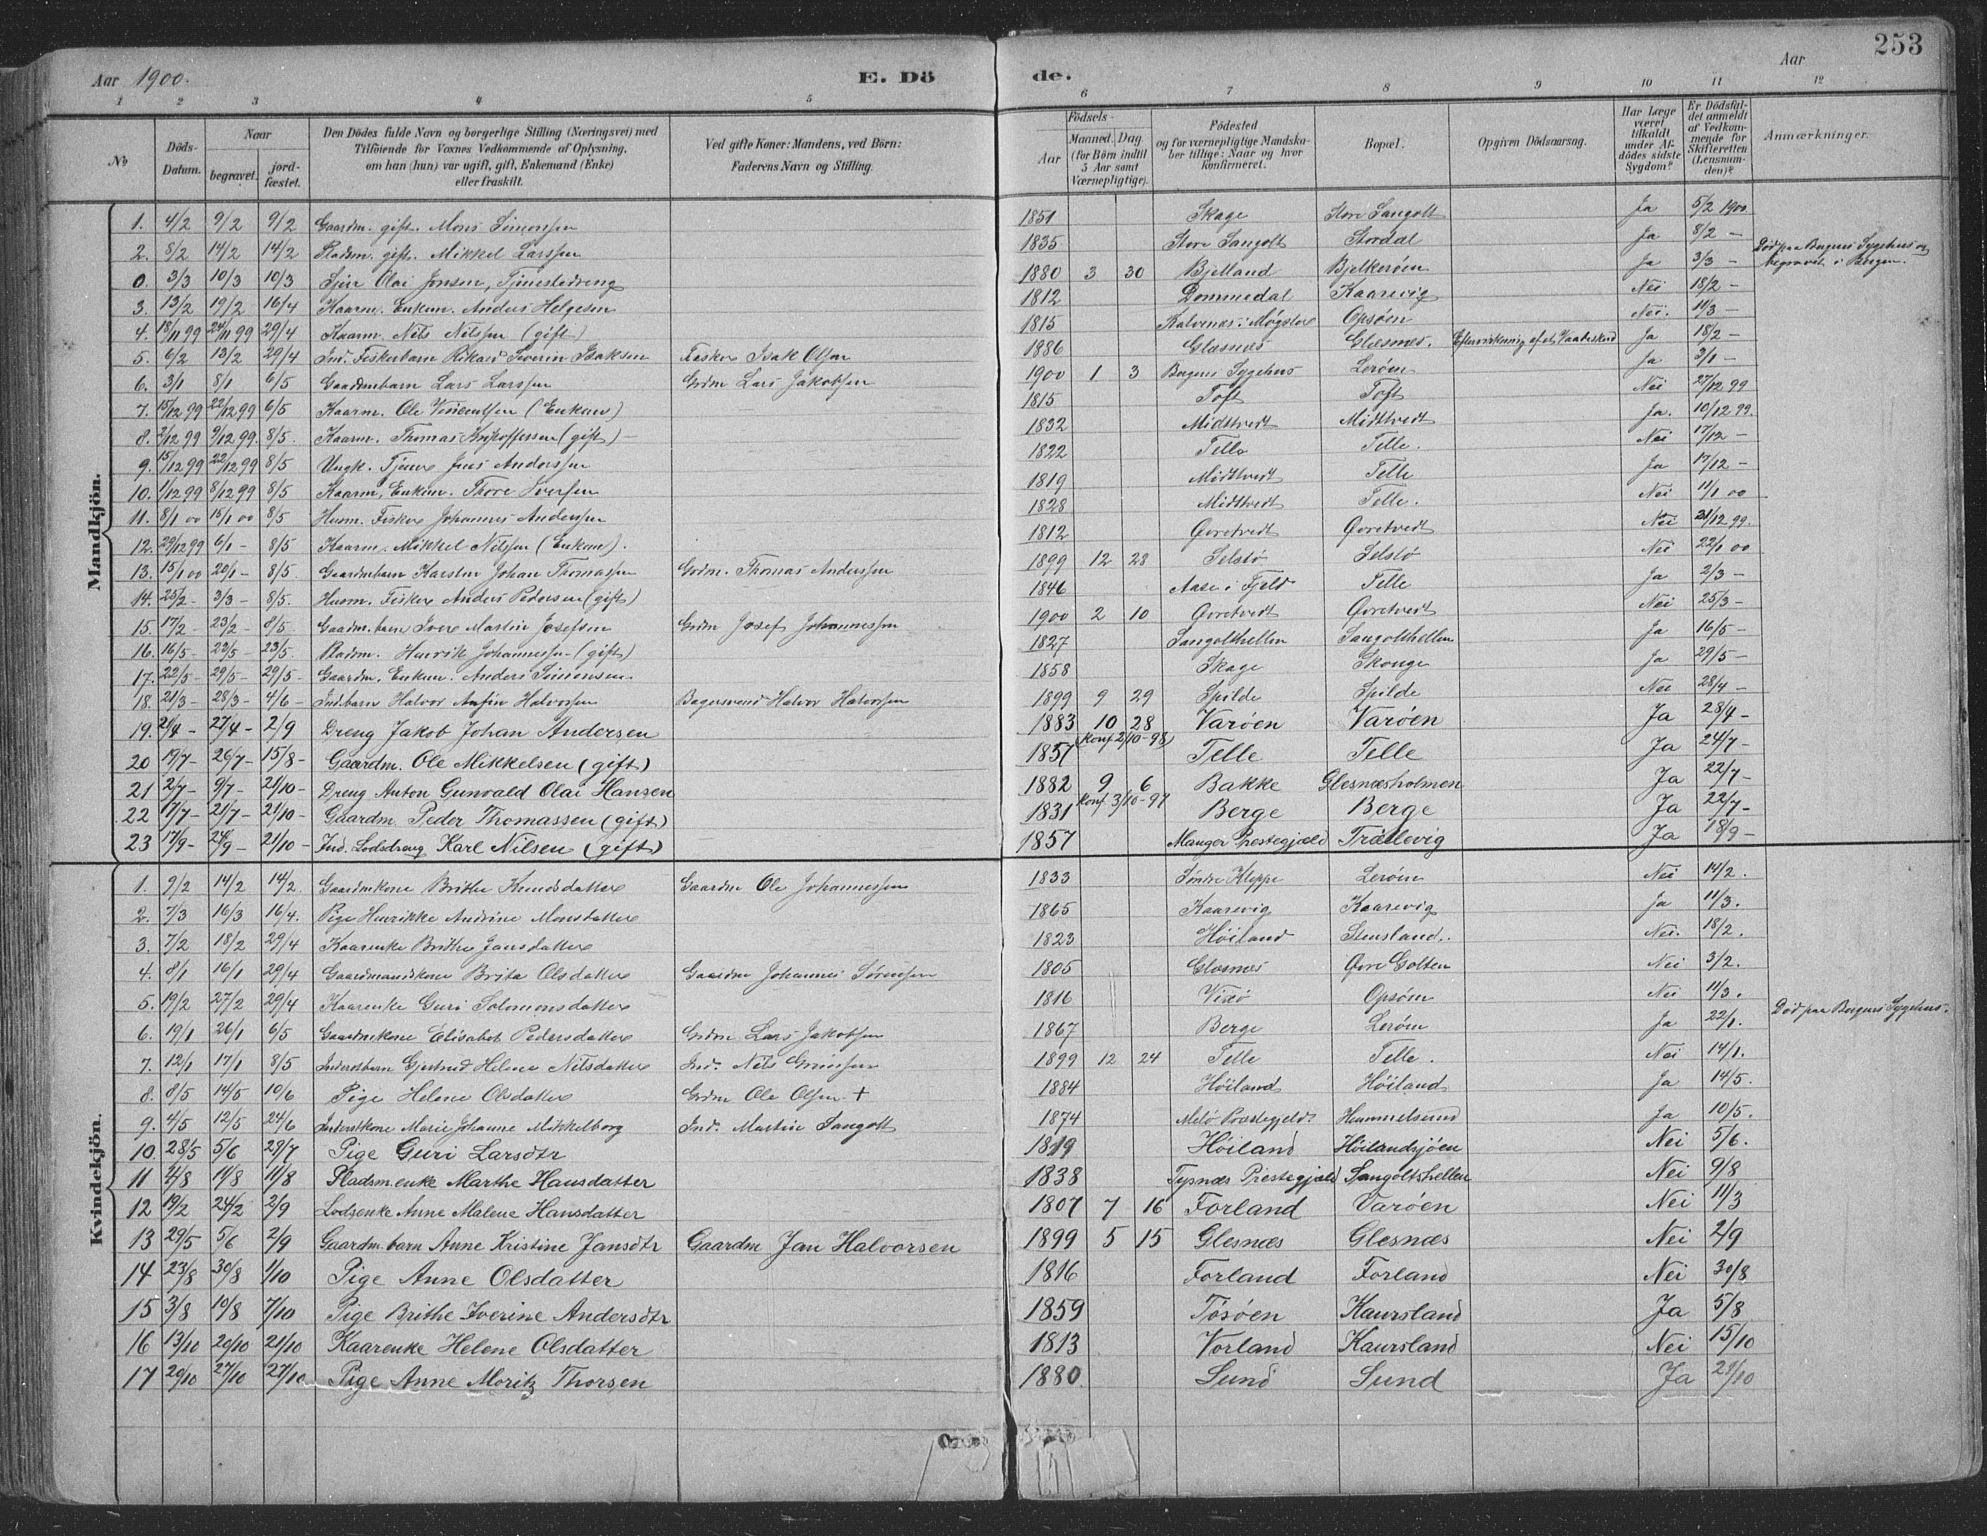 253
Aar 1900. E. Dö de. Aar
1 2 3 4 5 6 7 8 9 10 11 12
No Döds-Datum. Naar begravet. jord-fæstet. Den Dödes fulde Navn og borgerlige Stilling (Næringsvei) med Tilföiende för Voxnes Vedkommende af Oplysning, om han (hun) var ugift, gift, Enkemand (Enke) eller fraskilt. Ved gifte Koner: Mandens, ved Börn: Faderens Navn og Stilling. Födsels- Aar Maaned. Dag (for Börn indtil 5 Aar samt Værnepligtige). Födested og for værnepligtige Mandskaber tillige: Naar og hvor konfirmeret. Bopæl. Opgiven Dödsaarsag. Har Læge været tilkaldt under Afdödes sidste Sygdom? Er Dödsfaldet anmeldt af Vedkommende for Skifteretten (Lensmanden)? Anmærkninger.
Mandkjön.
1. 4/2 9/2 9/2 Gaardm. gift. Mons Simonsen 1851 Skage Store Sangolt Ja 5/2 1900
2. 8/2 14/2 14/2 Pladsm. gift. Mikkel Larssen 1835 Store Sangolt Stordal Ja 8/2 –
0. 3/3 10/3 10/3 Olai Jensen, Tjenestedreng 1880 3 30 Bjelland Bjelkerøen Ja 3/3 – Død paa Bergens Sygehus og begravet i Bergen.
3. 13/2 19/2 16/4 Kaarm. Enkem. Anders Helgesen 1812 Dommedal Kaarevig Nei 18/2 –
4. 18/11 99 24/11 99 29/4 Kaarm. Nils Nilssen (gift) 1815 Kalvenes i Møgster Opsøen Nei. 11/3 –
5. 6/2 13/2 29/4 Ind. Fiskerbarn Rikard Severin Isaksen Fisker Isak Olsen 1886 Glæsnes Glæsnes. Eftervirkning af et Vaadeskud Ja 18/2 –
6. 3/1 8/1 6/5 Gaardmbarn Lars Larssen Grdm Lars Jakobsen 1900 1 3 Bergens Sygehus Lerøen Ja 3/1 –
7. 15/12 99 22/12 99 6/5 Kaarm. Ole Vincentsen (Enkem) 1815 Toft Toft Nei 27/12 99
8. 2/12 99 9/12 99. 8/5. Kaarm. Thomas Kristoffersen (gift) – 1832 Midttvedt Midttvedt Ja. 10/12 99.
9. 15/12 99 22/12 99 8/5 Ungk. Tjener Jens Anderssen 1822 Telle Telle. Nei 17/12 –
10. 1/12 99 8/12 99 8/5 Kaarm, Enkem. Thore Iversen 1819 Midttvedt Telle Ja 17/12 –
11. 8/1 00 15/1 00 8/5 Husm. Fisker Johannes Anderssen 1828 Midttvedt Telle. Nei 11/1 00
12. 29/12 99 6/1 – 8/5 Kaarm. Mikkel Nilssen (Enkem). 1812 Øvretvedt Øvretvedt Nei 31/12 99.
13. 15/1 00 20/1 – 8/5. Gaardmbarn Karsten Johan Thomassen Grdm. Thomas Anderssen 1899 12 28 Selstø Selstø Nei 22/1 00
14. 25/2 – 3/3 – 8/5. Husm. Fisker Anders Pedersen (gift) 1846 Aase i Fjeld Telle Ja 2/3 –
15. 17/2 – 23/2 – 8/5 Gaardm. barn Iver Martin Josefsen Grdm Josef Johannessen 1900 2 10 Øvretvedt Øvretvedt Nei 25/3 –
16. 16/5 – 23/5 – 23/5. Pladsm. Henrik Johannessen (gift) 1827 Sangolthellen Sangolthellen Ja 16/5 –
17. 22/5 – 29/5 – 29/5. Gaardm. Enkem. Anders Simonsen 1858 Skage Skouge Ja 29/5 –
18. 21/3 – 28/3 – 4/6 – Ind. barn Halvor Halvorssen Bagersvend Halvor Halvorssen 1899 9 29 Spilde Spilde Nei 28/4 –
19. 21/4 – 27/4 – 2/9 Dreng Jakob Johan Andersen 1883 10 28 (konf. 2/10 – 98) Varøen Varøen Ja 28/4 –
20 19/7 – 26/7 – 15/8 – Gaardm. Ole Mikkelsen (gift) 1857 Telle Telle Ja 24/7 –
21 2/7 – 9/7 – 21/10 – Dreng Anton Gunvald Olai Hansen 1882 9 6 konf 3/10 – 97 Bakke Glesnæsholmen Ja 22/7 –
22 17/7 – 21/7 – 21/10 – Gaardm. Peder Thomassen (gift) 1831 Berge Berge Ja 22/7 –
23 17/9 – 24/9 – 21/10 – Ind. Lodsdreng Karl Nilsen (gift) 1857 Manger Prestegjæld Trællevig Ja 18/9 –
Kvindekjön.
1. 9/2 14/2 14/2 Gaardmkone Brithe Knudsdatter Gaardm Ole Johannessen 1833 Søndre Kleppe Lerøen Nei 14/2.
2. 7/3 16/3 16/4. Pige Henrikke Andrine Monsdatter 1865 Kaarevig Kaarevig Ja 11/3.
3. 7/2 18/2 29/4 Kaarenke Brithe Jansdatter 1823 Høiland Stensland. Nei. 18/2.
4. 8/1 16/1 29/4 Gaardmandskone Brita Olsdatter Gaardm Johannes Sørensen 1805 Glæsnes Øvre Golten Nei 3/2.
5. 19/2 27/2 29/4 Kaarenke Guri Salomonsdatter 1816 Vixø Opsøen Nei 11/3.
6. 19/1 26/1 6/5 Gaardmkone Elisabet Pedersdatter Grdm Lars Jakobsen 1867 Berge Lerøen Ja 22/1. Død paa Bergens Sygehus.
7. 12/1 17/1 8/5 Inderstbarn Gjertrud Helene Nilsdatter Ind. Nils 1899 12 24 Telle Telle. Nei 14/1.
8. 8/5 14/5 10/6 Pige Helene Olsdatter Grdm Ole Olsen + 1884 Høiland Høiland Ja 14/5.
9. 4/5 12/5 24/6 Inderstkone Marie Johanne Mikkelborg Ind. Martin Sangolt 1874 Melø Præstegjeld Hummelsund Ja 10/5.
10. 28/5 5/6 23/7 Pige Guri Larsdtr 1819 Høiland Høilandsjøen Nei 5/6.
11 4/8 11/8 11/8 Pladsm.enke Marthe Hansdatter 1838 Tysnæs Prestegjæld Sangoltshellen Nei 9/8
12 19/2 24/2 2/9 Lodsenke Anne Malene Hansdatter 1807 7 16 Forland Varøen Nei 11/3
13 29/5 5/6 2/9 Gaardm. barn Anne Kristine Jansdtr Gaardm Jan Halvorsen 1899 5 15 Glesnæs Glesnæs Nei 2/9
14 23/8 30/8 1/10 Pige Anne Olsdatter 1816 Forland Forland Nei 30/8
15 3/8 10/8 7/10 Pige Brithe Iverine Andersdtr 1859 Tøsøen Kaursland Ja 5/8
16 13/10 20/10 21/10 Kaarenke Helene Olsdatter 1813 Vorland Kaursland Nei 15/10
17 20/10 27/10 27/10 Pige Anne Moritz Thorsen 1880 Sund Sund Ja 21/10